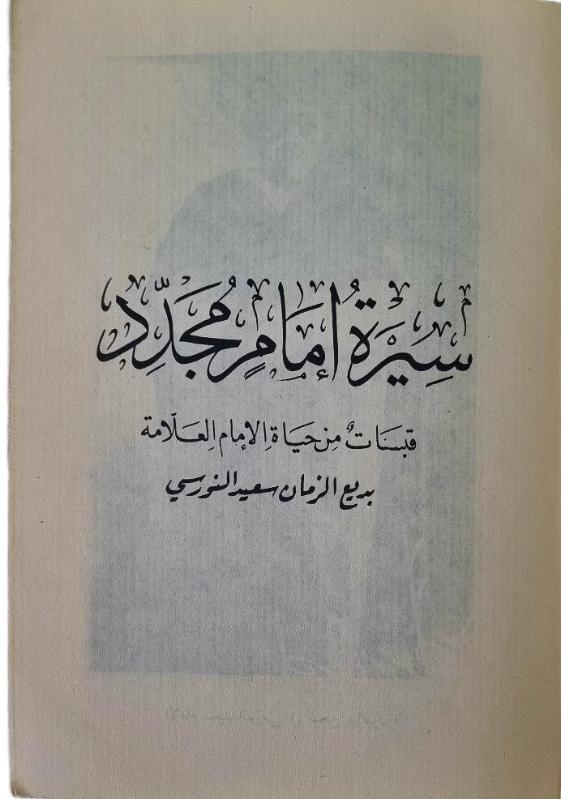 سِيرَةُ إمَامٍ مُجَدِّد
قبسَاتٌ مِن حيَاةِ الإمام العلّامة
بديع الزمان سعيد النورسي